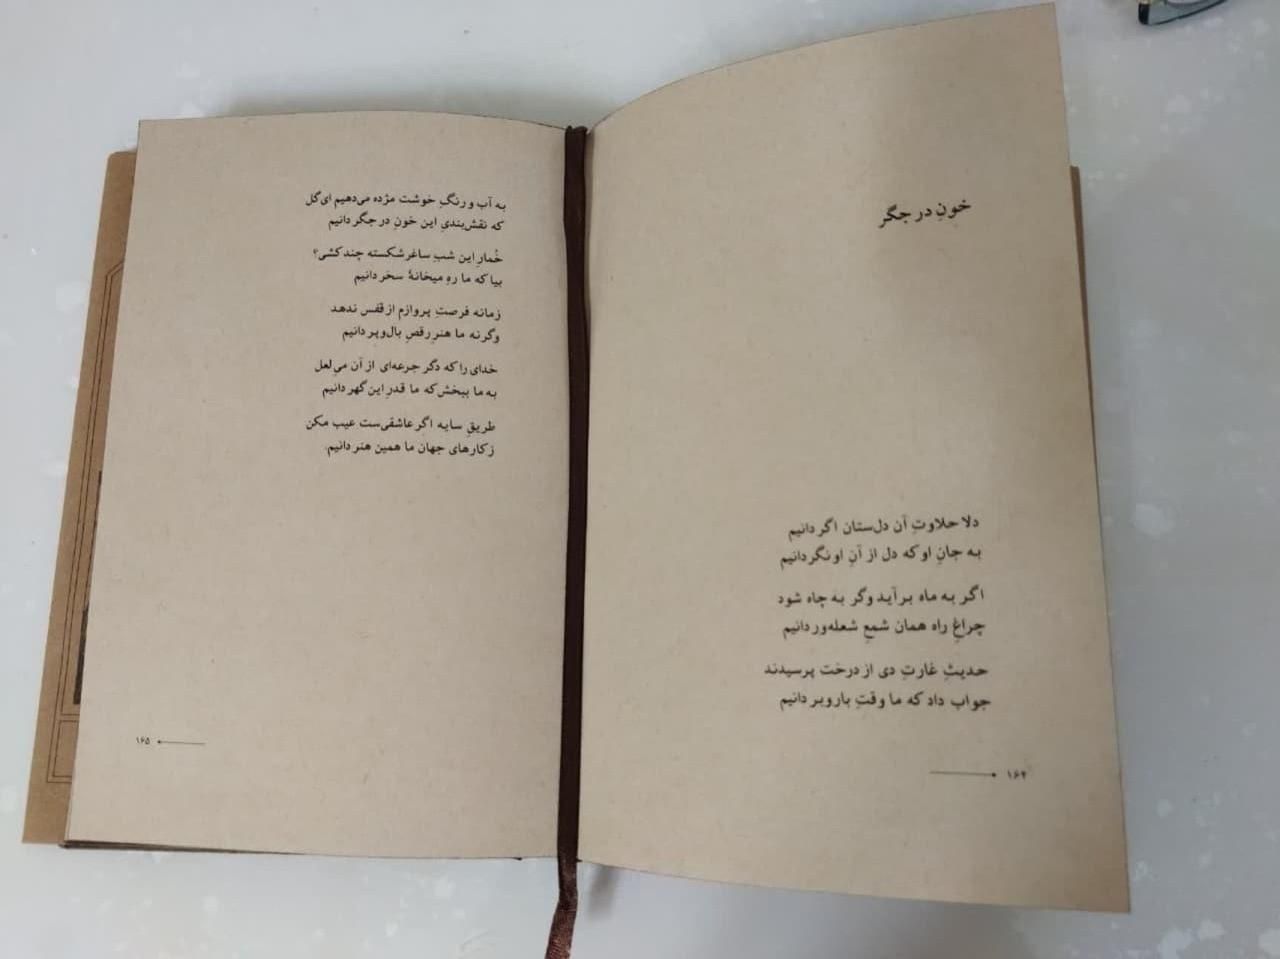 خونِ در جگر
دلا حلاوتِ آن دل‌ستان اگر دانیم
به جانِ او که دل از آنِ او نگردانیم
اگر به ماه برآید وگر به چاه شود
چراغِ راه همان شمعِ شعله‌ور دانیم
حدیثِ غارتِ دی از درخت پرسیدند
جواب داد که ما وقتِ بار و بر دانیم
۱۶۴
به آب و رنگِ خوشت مژده می‌دهیم ای گل
که نقش‌بندیِ این خونِ در جگر دانیم
خُمارِ این شبِ ساغر شکسته چند کشی؟
بیا که ما رهِ میخانهٔ سحر دانیم
زمانه فرصتِ پروازم از قفس ندهد
وگرنه ما هنرِ رقصِ بال‌وپر دانیم
خدای را که دگر جرعه‌ای از آن میِ لعل
به ما ببخش که ما قدرِ این گهر دانیم
طریقِ سایه اگر عاشقی‌ست عیب مکن
ز کارهای جهان ما همین هنر دانیم.
۱۶۵